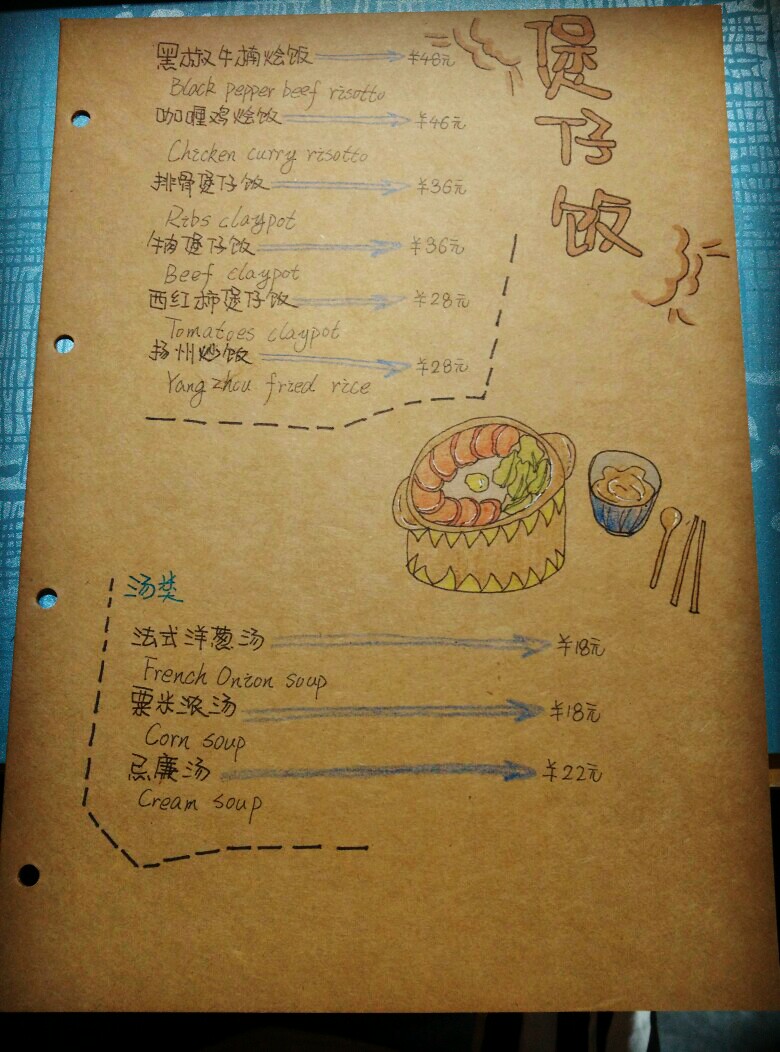 煲仔饭
黑椒牛楠烩饭 ¥48元
Black pepper beef risotto
咖喱鸡烩饭 ¥46元
Chicken curry risotto
排骨煲仔饭 ¥36元
Ribs claypot
牛肉煲仔饭 ¥36元
Beef claypot
西红柿煲仔饭 ¥28元
Tomatoes claypot
扬州炒饭 ¥28元
Yangzhou fried rice
汤类
法式洋葱汤 ¥18元
French Onion soup
粟米浓汤 ¥18元
Corn soup
忌廉汤 ¥22元
Cream soup